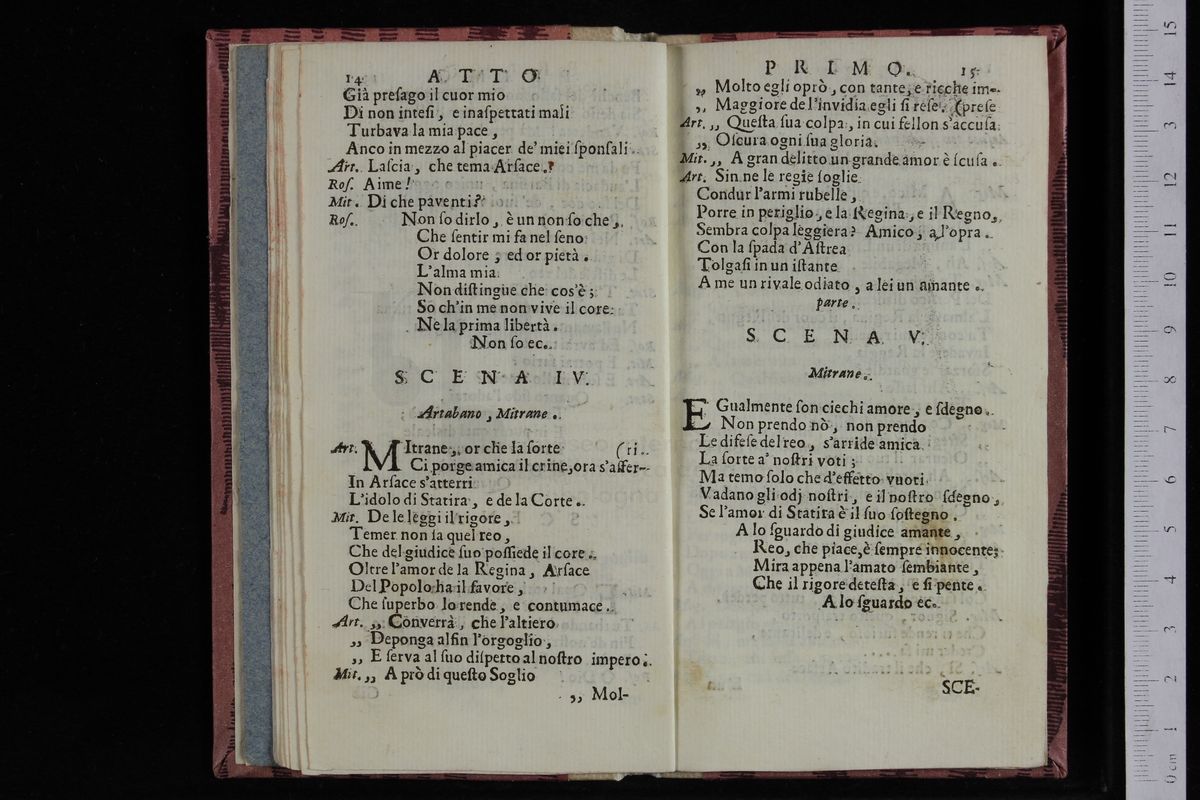 14 ATTO
Già preſago il cuor mio
Di non inteſi, e inaſpettati mali
Turbava la mia pace,
Anco in mezzo al piacer de' miei ſponſali.
Art. Laſcia, che tema Arſace.
Roſ. Aime!
Mit. Di che paventi?
Roſ. Non ſo dirlo, è un non ſo che,
Che ſentir mi fa nel ſeno
Or dolore, ed or pietà.
L'alma mia
Non diſtingue che cos'è;
So ch'in me non vive il core
Ne la prima libertà.
Non ſo ec.
SCENA IV.
Artabano, Mitrane.
Art. MItrane, or che la ſorte (ri
Ci porge amica il crine, ora s'aſſer-
In Arſace s'atterri
L'idolo di Statira, e de la Corte.
Mit. De le leggi il rigore,
Temer non ſa quel reo,
Che del giudice ſuo poſſiede il core.
Oltre l'amor de la Regina, Arſace
Del Popolo ha il favore,
Che ſuperbo lo rende, e contumace.
Art. ,, Converrà, che l'altiero
,, Deponga alfin l'orgoglio,
,, E ſerva al ſuo diſpetto al noſtro impero.
Mit. ,, A prò di queſto Soglio
,, Mol-
PRIMO. 15
,, Molto egli oprò, con tante, e ricche im-
,, Maggiore de l'invidia egli ſi reſe. (preſe
Art. ,, Queſta ſua colpa, in cui fellon s'accuſa
,, Oſcura ogni ſua gloria.
Mit. ,, A gran delitto un grande amor è ſcuſa.
Art. Sin ne le regie ſoglie
Condur l'armi rubelle,
Porre in periglio, e la Regina, e il Regno,
Sembra colpa leggiera? Amico, a l'opra.
Con la ſpada d'Aſtrea
Tolgaſi in un iſtante
A me un rivale odiato, a lei un amante.
parte.
SCENA V.
Mitrane.
EGualmente ſon ciechi amore, e ſdegno.
Non prendo nò, non prendo
Le difeſe del reo, s'arride amica
La ſorte a' noſtri voti;
Ma temo ſolo che d'effetto vuoti
Vadano gli odj noſtri, e il noſtro ſdegno,
Se l'amor di Statira è il ſuo ſoſtegno.
A lo ſguardo di giudice amante,
Reo, che piace, è ſempre innocente;
Mira appena l'amato ſembiante,
Che il rigore deteſta, e ſi pente.
A lo ſguardo ec.
SCE-
0 cm 1 2 3 4 5 6 7 8 9 10 11 12 13 14 15